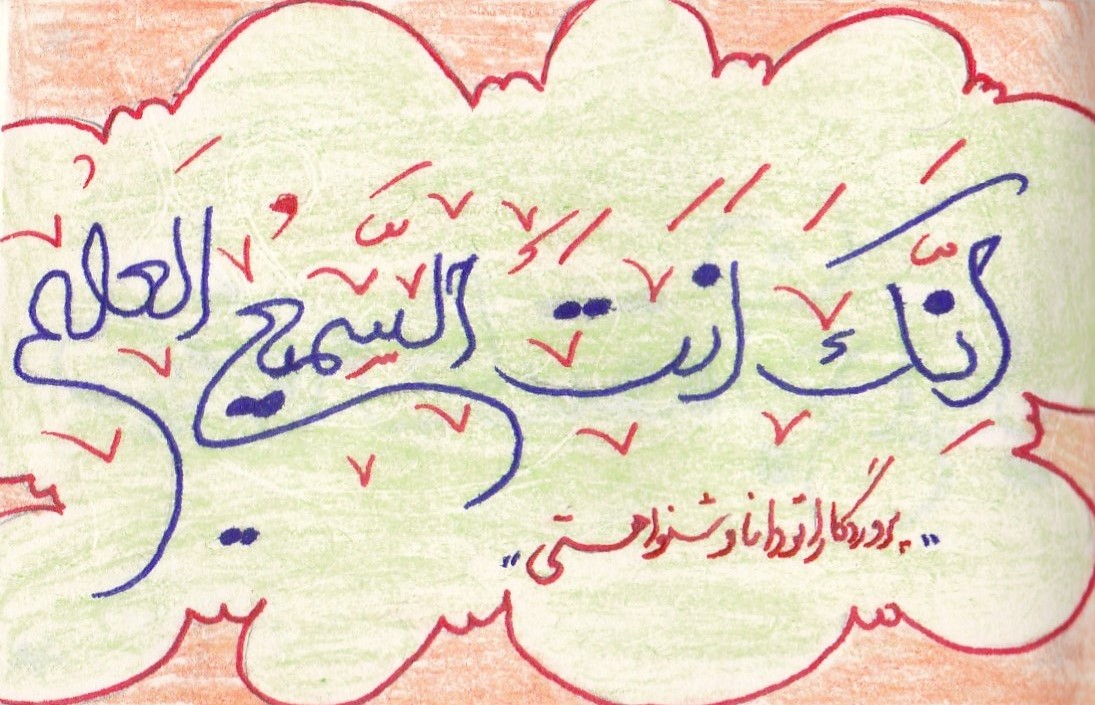 اِنَّكَ اَنْتَ السَّمیعُ الْعَلیمُ
"پروردگارا تو دانا و شنوا هستی"